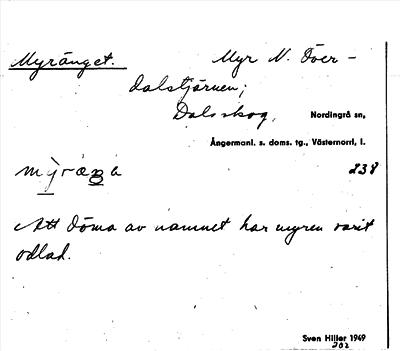 Myränget. Myr N. Över-
dalstjärnen;
Dalsskog, Nordingrå sn,
Ångermanl. s. doms. tg., Västernorrl, l.
238
Att döma av namnet har myren varit
odlad.
Sven Hiller 1949
202